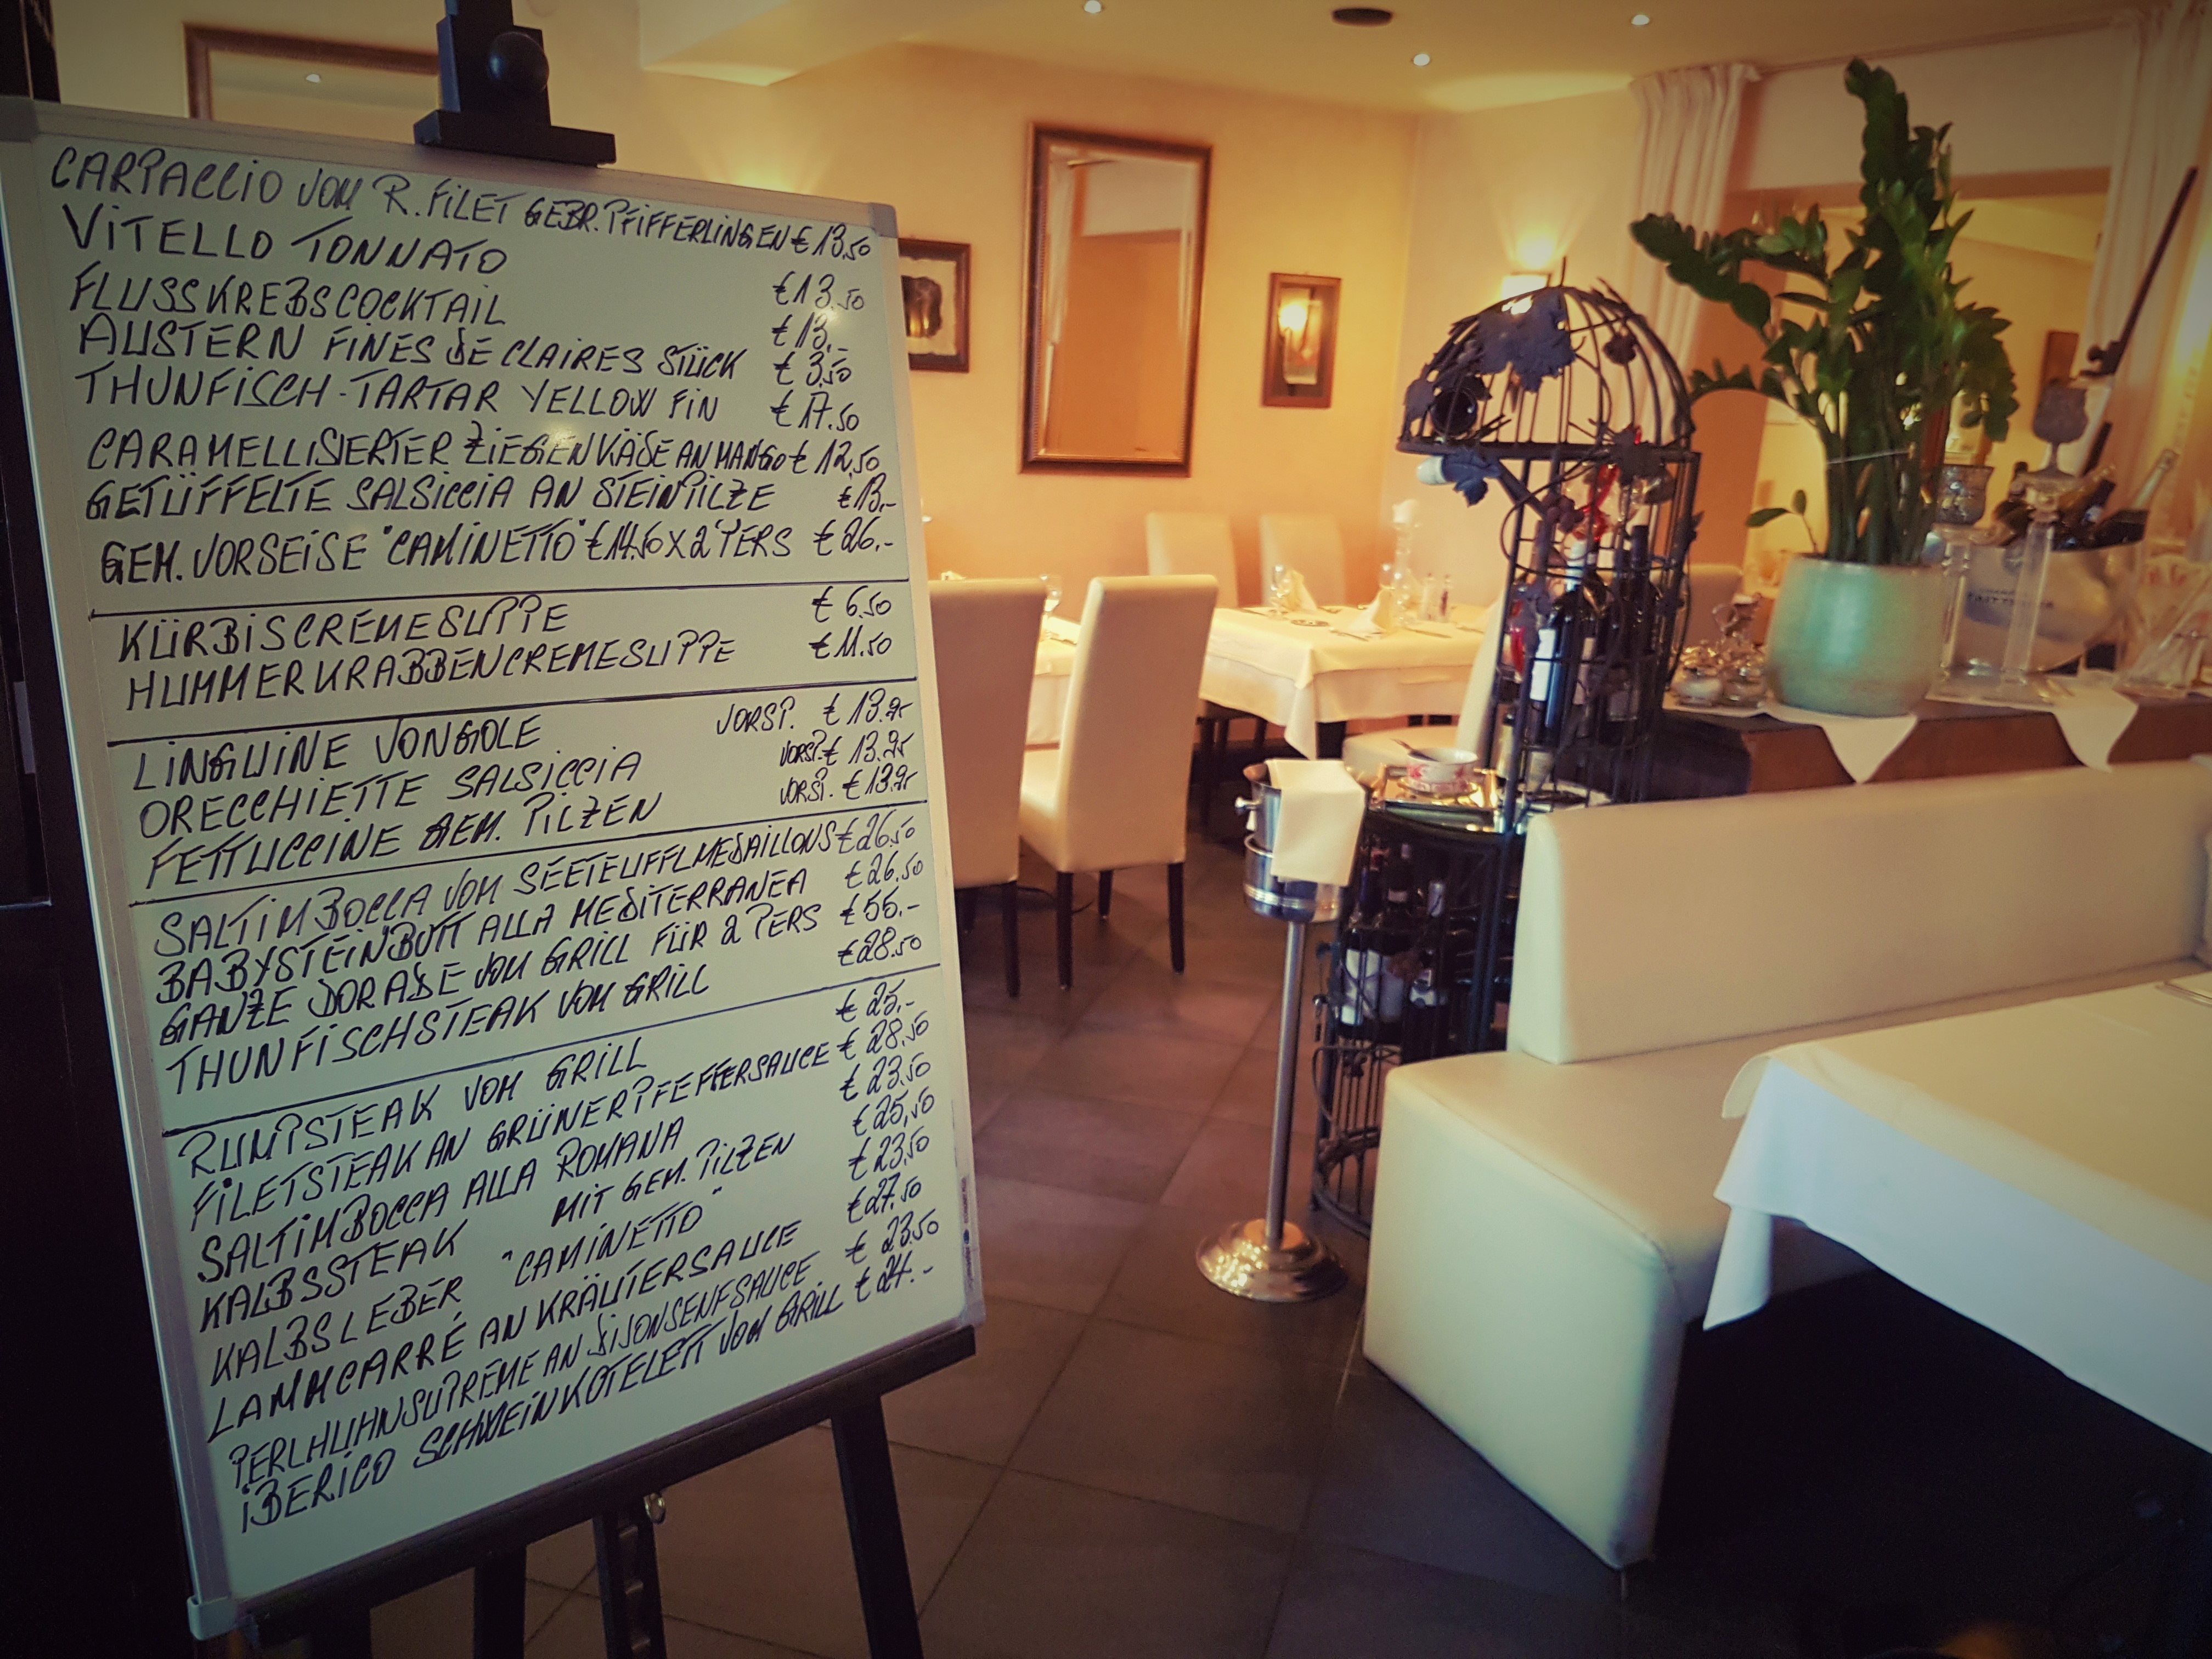 CARPACCIO VOM R. FILET GEBR. PFIFFERLINGEN € 13,50
VITELLO TONNATO € 13,50
FLUSSKREBSCOCKTAIL € 13,-
AUSTERN FINES DE CLAIRES STÜCK € 3,50
THUNFISCH-TARTAR YELLOW FIN € 17.50
CARAMELLISIERTER ZIEGENKÄSE AN MANGO € 12,50
GETÜFFELTE SALSICCIA AN STEINPILZE € 13,-
GEM. VORSEISE "CAMINETTO" € 14.50 X 2 PERS € 26,-
KÜRBISCRÉMESUPPE € 6.50
HUMMERKRABBENCREMESUPPE € 11.50
LINGUINE VONGOLE VORSP. € 13.95
ORECCHIETTE SALSICCIA VORSP. € 13.95
FETTUCCINE GEM. PILZEN VORSP. € 13.95
SALTIMBOCCA VOM SEETEUFFLMEDAILLONS € 26.50
BABYSTEINBUTT ALLA MEDITERRANEA € 26.50
GANZE DORADE VOM GRILL FÜR 2 PERS € 55.-
THUNFISCHSTEAK VOM GRILL € 28.50
RUMPSTEAK VOM GRILL € 25,-
FILETSTEAK AN GRÜNERPFEFFERSAUCE € 28,50
SALTIMBOCCA ALLA ROMANA € 23.50
KALBSSTEAK MIT GEM. PILZEN € 25,50
KALBSLEBER "CAMINETTO" € 23,50
LAMMCARRÉ AN KRÄUTERSAUCE € 27.50
PERLHUHNSUPRÉME AN DIJONSENFSAUCE € 23.50
IBERICO SCHWEINKOTELETT VOM GRILL € 24.-